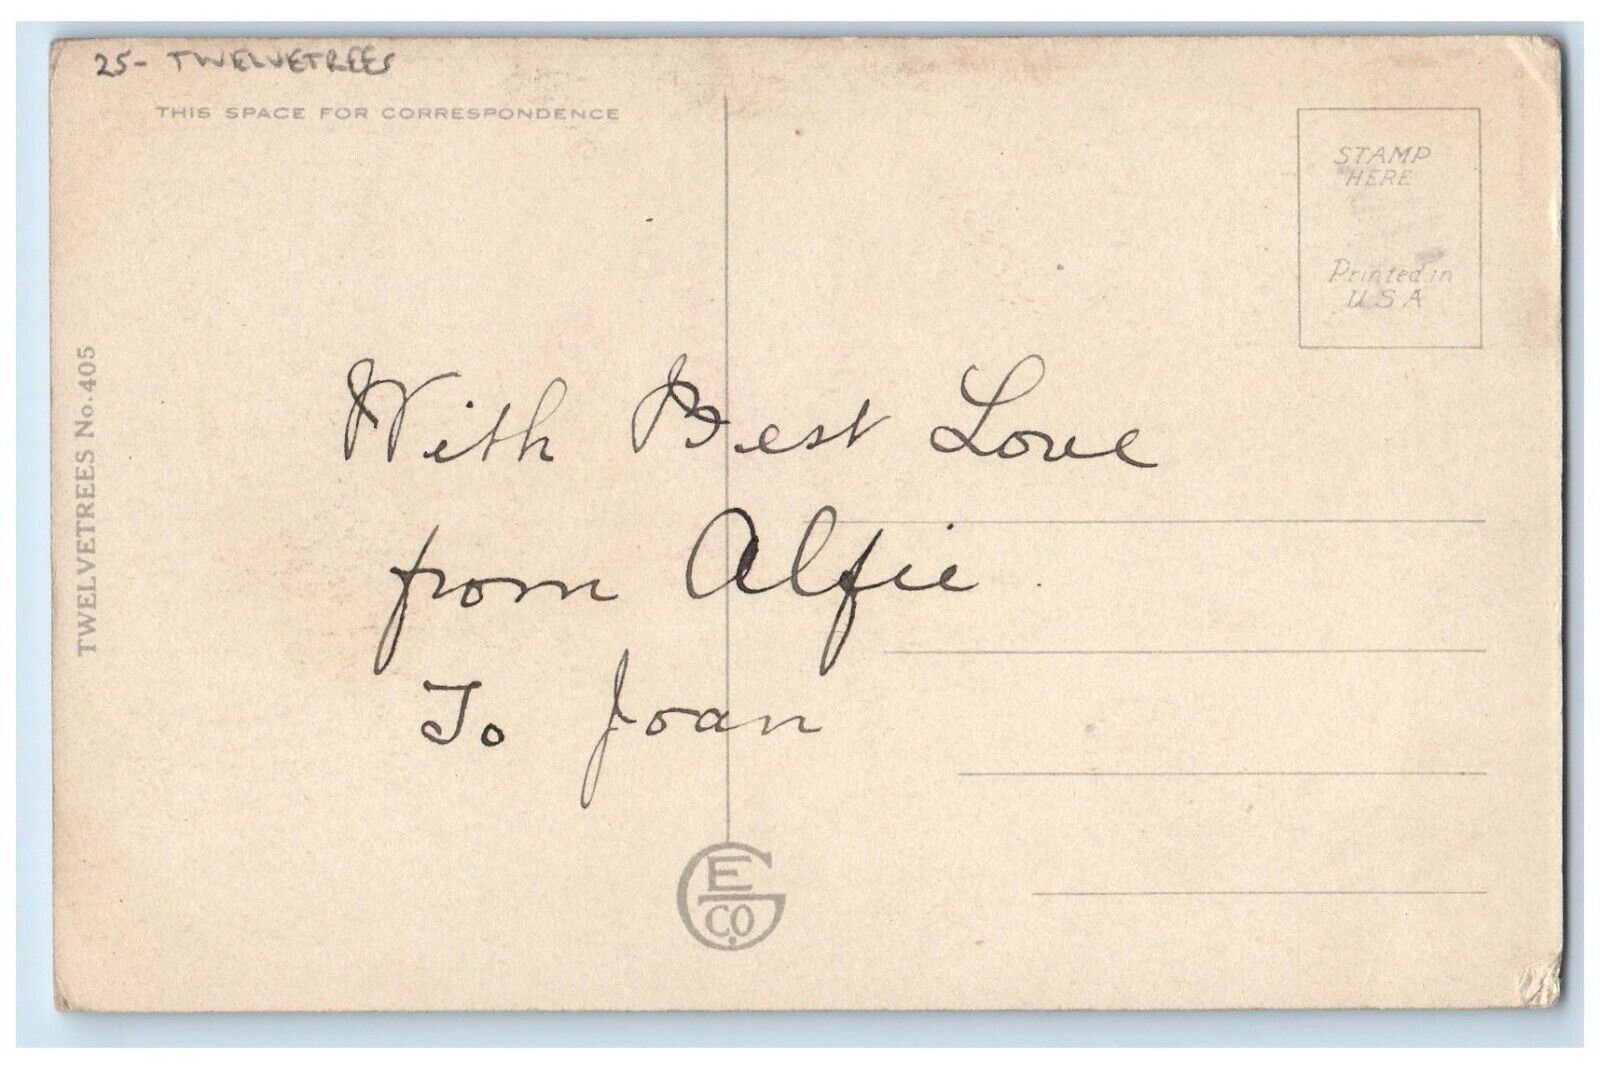 25- TWELVETREES
THIS SPACE FOR CORRESPONDENCE
STAMP
HERE
Printed in
USA
TWELVETREES No. 405
With Best Love
from Alfie.
To Joan
G E
CO.